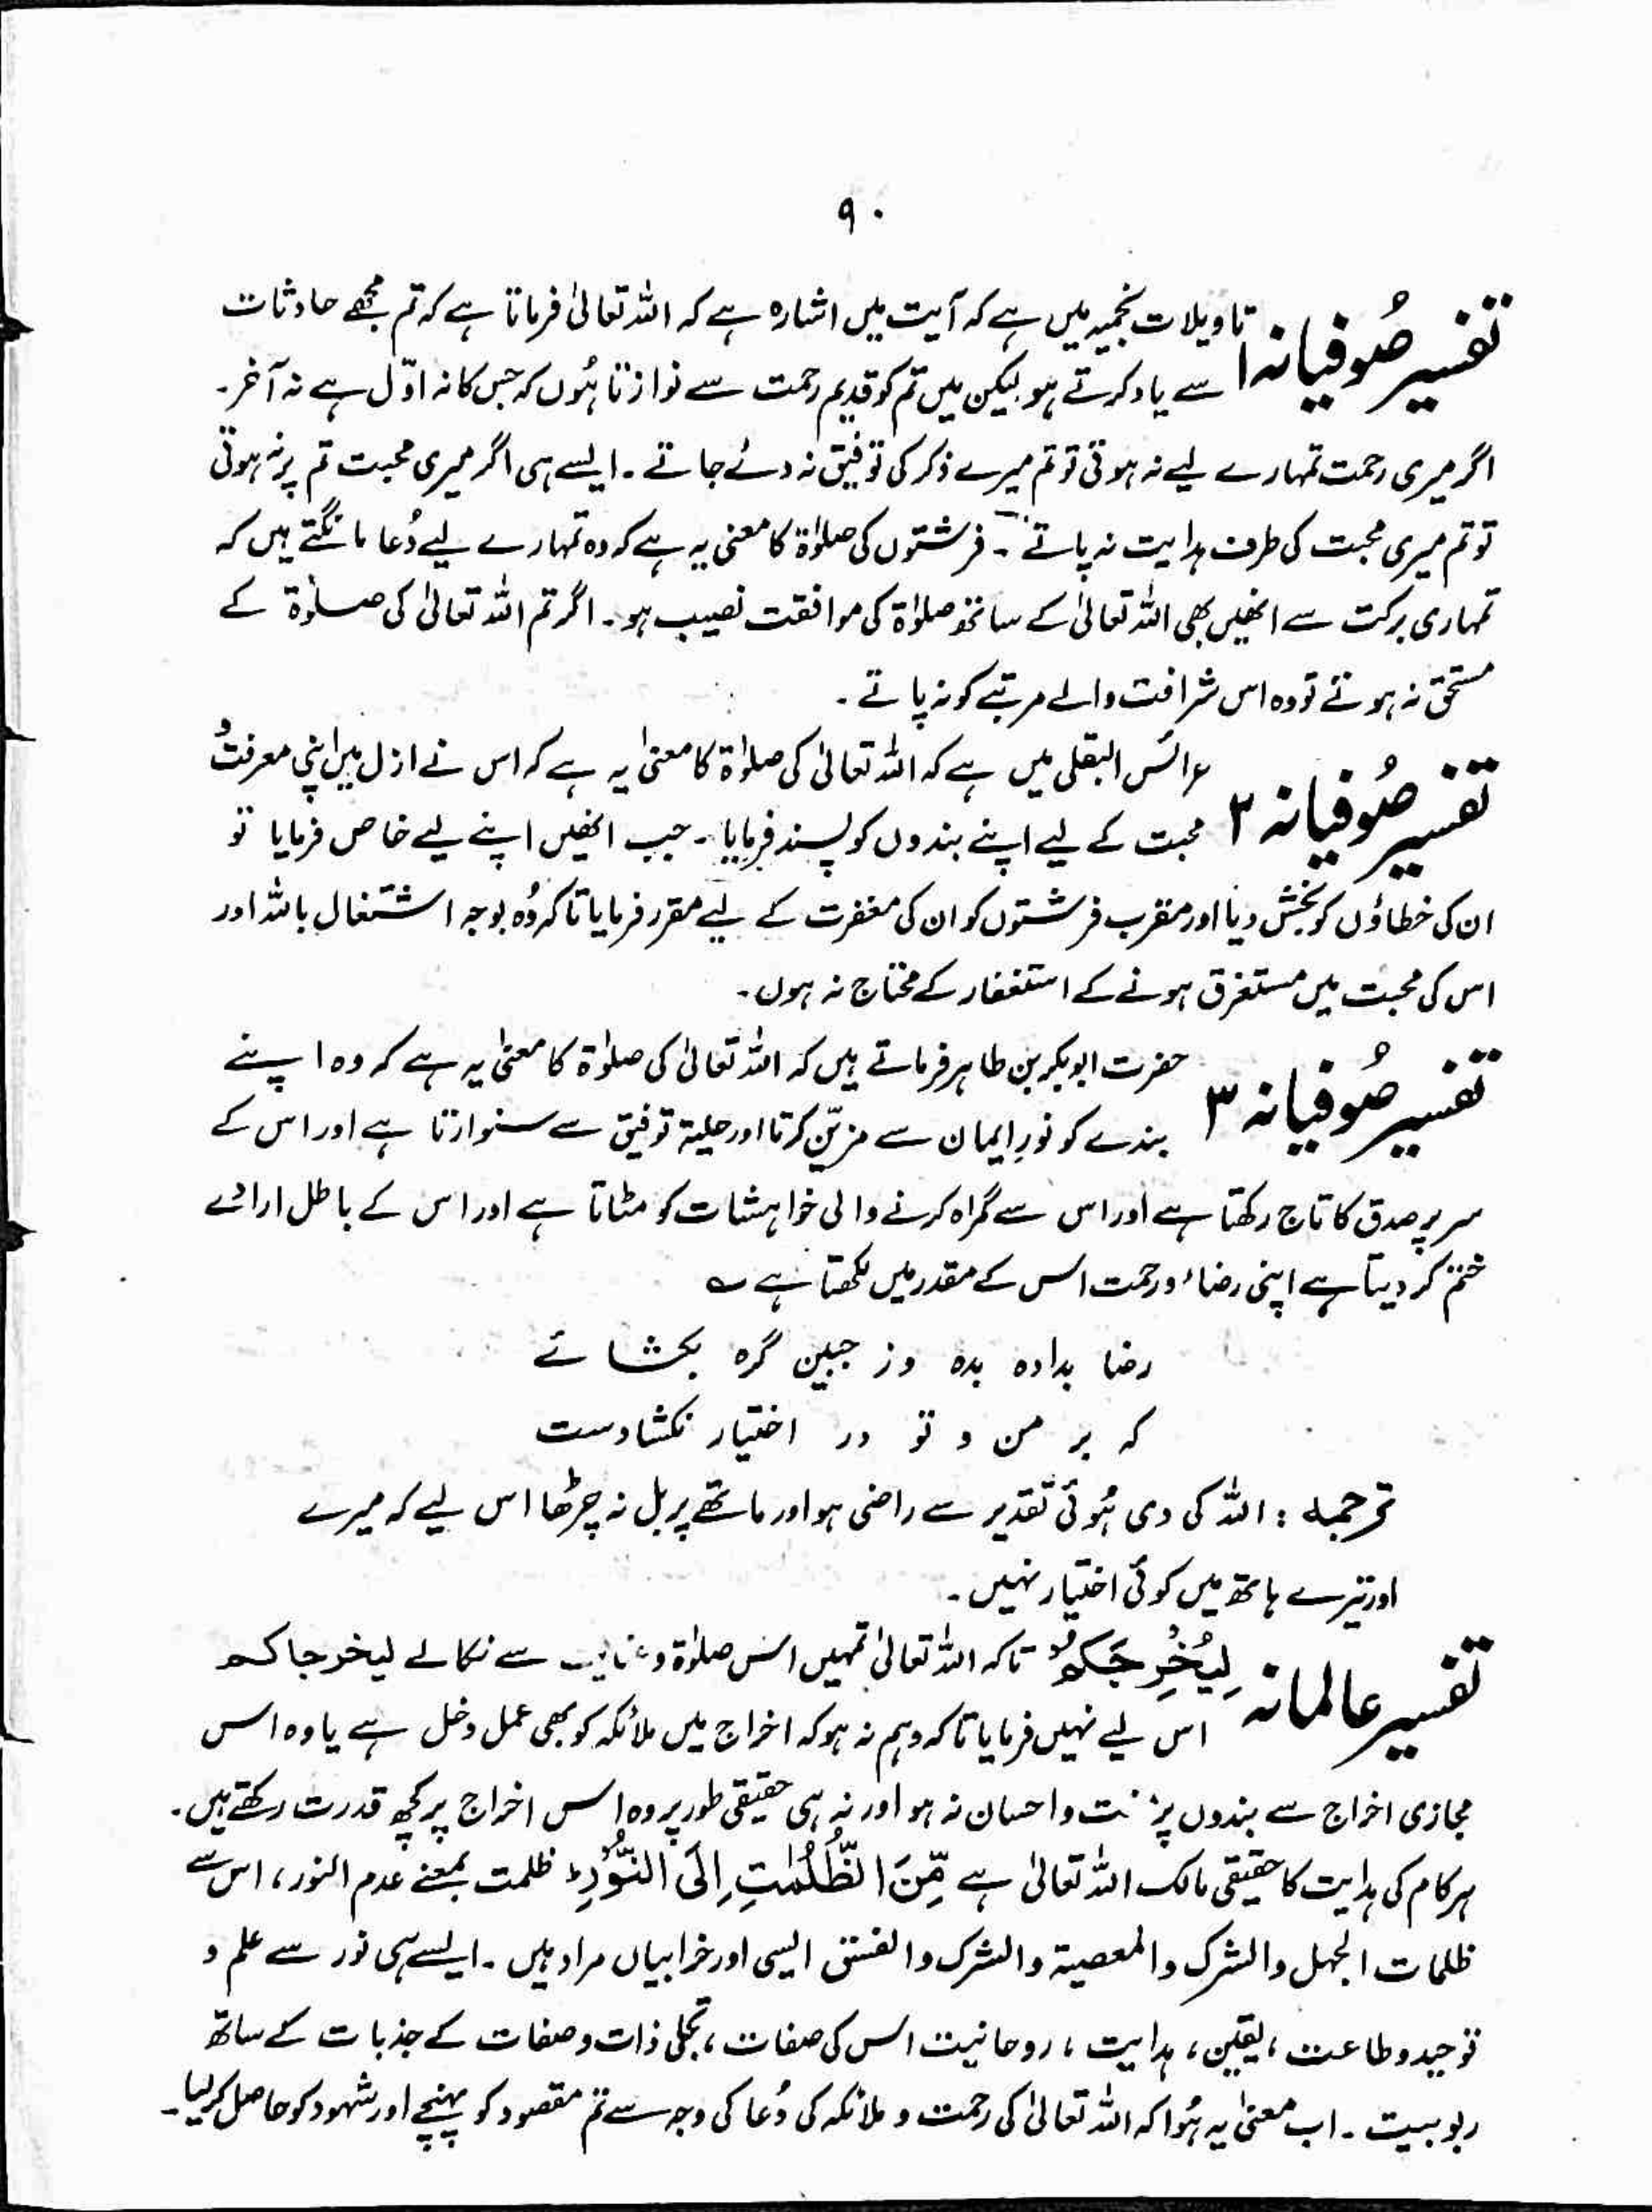 ۹۰
تفسیر صُوفیانہ ۱ تاویلات نجمیہ میں ہے کہ آیت میں اشارہ ہے کہ اللہ تعالیٰ فرماتا ہے کہ تم مجھے حادثات
سے یاد کرتے ہو لیکن میں تم کو قدیم رحمت سے نوازتا ہُوں کہ جس کا نہ اوّل ہے نہ آخر۔
اگر میری رحمت تمہارے لیے نہ ہوتی تو تم میرے ذکر کی توفیق نہ دئے جاتے۔ ایسے ہی اگر میری محبت تم پر نہ ہوتی
تو تم میری محبت کی طرف ہدایت نہ پاتے۔ فرشتوں کی صلوٰۃ کا معنی یہ ہے کہ وہ تمہارے لیے دُعا مانگتے ہیں کہ
تمہاری برکت سے انھیں بھی اللہ تعالیٰ کے ساتھ صلوٰۃ کی موافقت نصیب ہو۔ اگر تم اللہ تعالیٰ کی صلوٰۃ کے
مستحق نہ ہوتے تو وہ اس شرافت والے مرتبے کو نہ پاتے۔
تفسیر صُوفیانہ ۲ عرائس البقلی میں ہے کہ اللہ تعالیٰ کی صلوٰۃ کا معنیٰ یہ ہے کہ اس نے ازل میں اپنی معرفت و
محبت کے لیے اپنے بندوں کو پسند فرمایا۔ جب انھیں اپنے لیے خاص فرمایا تو
ان کی خطاؤں کو بخش دیا اور مقرب فرشتوں کو ان کی مغفرت کے لیے مقرر فرمایا تاکہ وُہ بوجہ اشتغال باللہ اور
اس کی محبت میں مستغرق ہونے کے استغفار کے محتاج نہ ہوں۔
تفسیر صُوفیانہ ۳ حضرت ابوبکر بن طاہر فرماتے ہیں کہ اللہ تعالیٰ کی صلوٰۃ کا معنیٰ یہ ہے کہ وہ اپنے
بندے کو نورِ ایمان سے مزیّن کرتا اور حلیۃ توفیق سے سنوارتا ہے اور اس کے
سر پر صدق کا تاج رکھتا ہے اور اس سے گمراہ کرنے والی خواہشات کو مٹاتا ہے اور اس کے باطل ارادے
ختم کر دیتا ہے اپنی رضاء و رحمت اس کے مقدر میں لکھتا ہے ؎
رضا بدادہ بدہ وز جبین گرہ بکشائے
کہ بر من و تو در اختیار نکشادست
ترجمہ : اللہ کی دی ہُوئی تقدیر سے راضی ہو اور ماتھے پر بل نہ چڑھا اس لیے کہ میرے
اور تیرے ہاتھ میں کوئی اختیار نہیں۔
تفسیر عالمانہ لِيُخْرِجَكُمْ تاکہ اللہ تعالیٰ تمہیں اس صلوٰۃ و عنایت سے نکالے لیخرجاکم
اس لیے نہیں فرمایا تاکہ وہم نہ ہو کہ اخراج میں ملائکہ کو بھی عمل دخل ہے یا وہ اس
مجازی اخراج سے بندوں پر منت و احسان نہ ہو اور نہ ہی حقیقی طور پر وہ اس اخراج پر کچھ قدرت رکھتے ہیں۔
ہر کام کی ہدایت کا حقیقی مالک اللہ تعالیٰ ہے مِّنَ الظُّلُمٰتِ اِلَى النُّوْرِ ط ظلمت بمعنے عدم النور، اس سے
ظلمات الجہل والشرک والمعصیۃ والشرک والفسق ایسی اور خرابیاں مراد ہیں۔ ایسے ہی نور سے علم و
توحید و طاعت، یقین، ہدایت، روحانیت اس کی صفات، تجلی ذات و صفات کے جذبات کے ساتھ
ربوبیت۔ اب معنیٰ یہ ہُوا کہ اللہ تعالیٰ کی رحمت و ملائکہ کی دُعا کی وجہ سے تم مقصود کو پہنچے اور شہود کو حاصل کر لیا۔